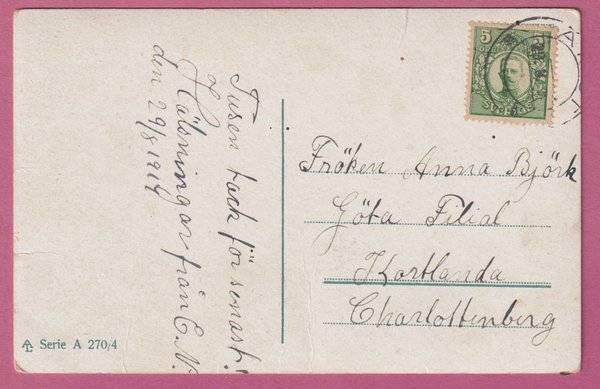 Tusen tack för senast!
Hälsningar från E. N.
den 29/8 1914
5 5
ÖRE
SVERIGE
Fröken Anna Björk
Göta Filial
Kortlanda
Charlottenberg
Serie A 270/4